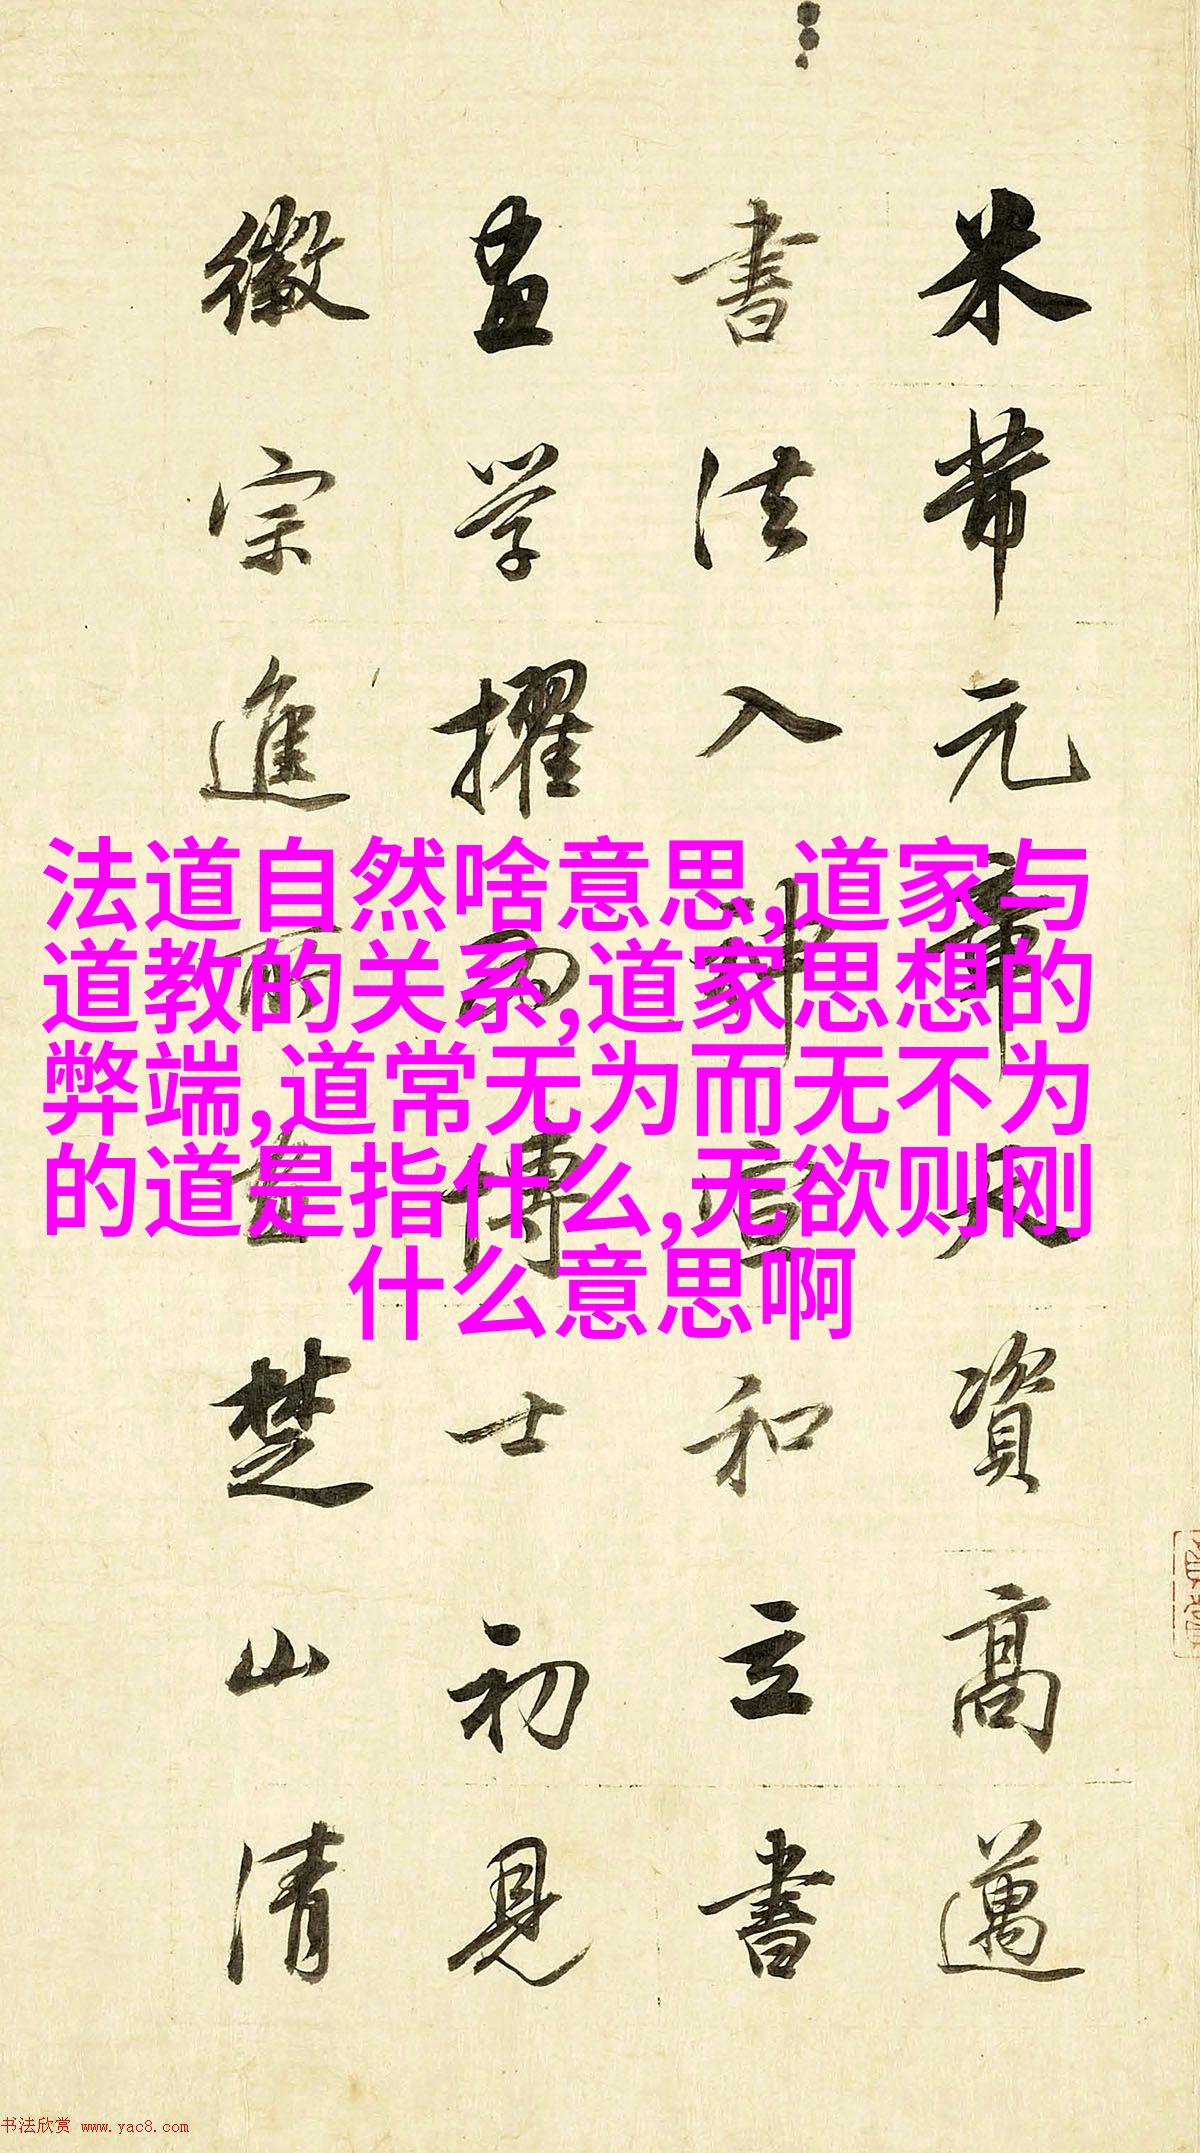 米芾元章天資高邁
書法入神宣和立書
畫學擢為博士初見
徽宗進所畫楚山清
法道自然啥意思,道家与
道教的关系,道家思想的
弊端,道常无为而无不为
的道是指什么,无欲则刚
什么意思啊
书法欣赏 www.yac8.com